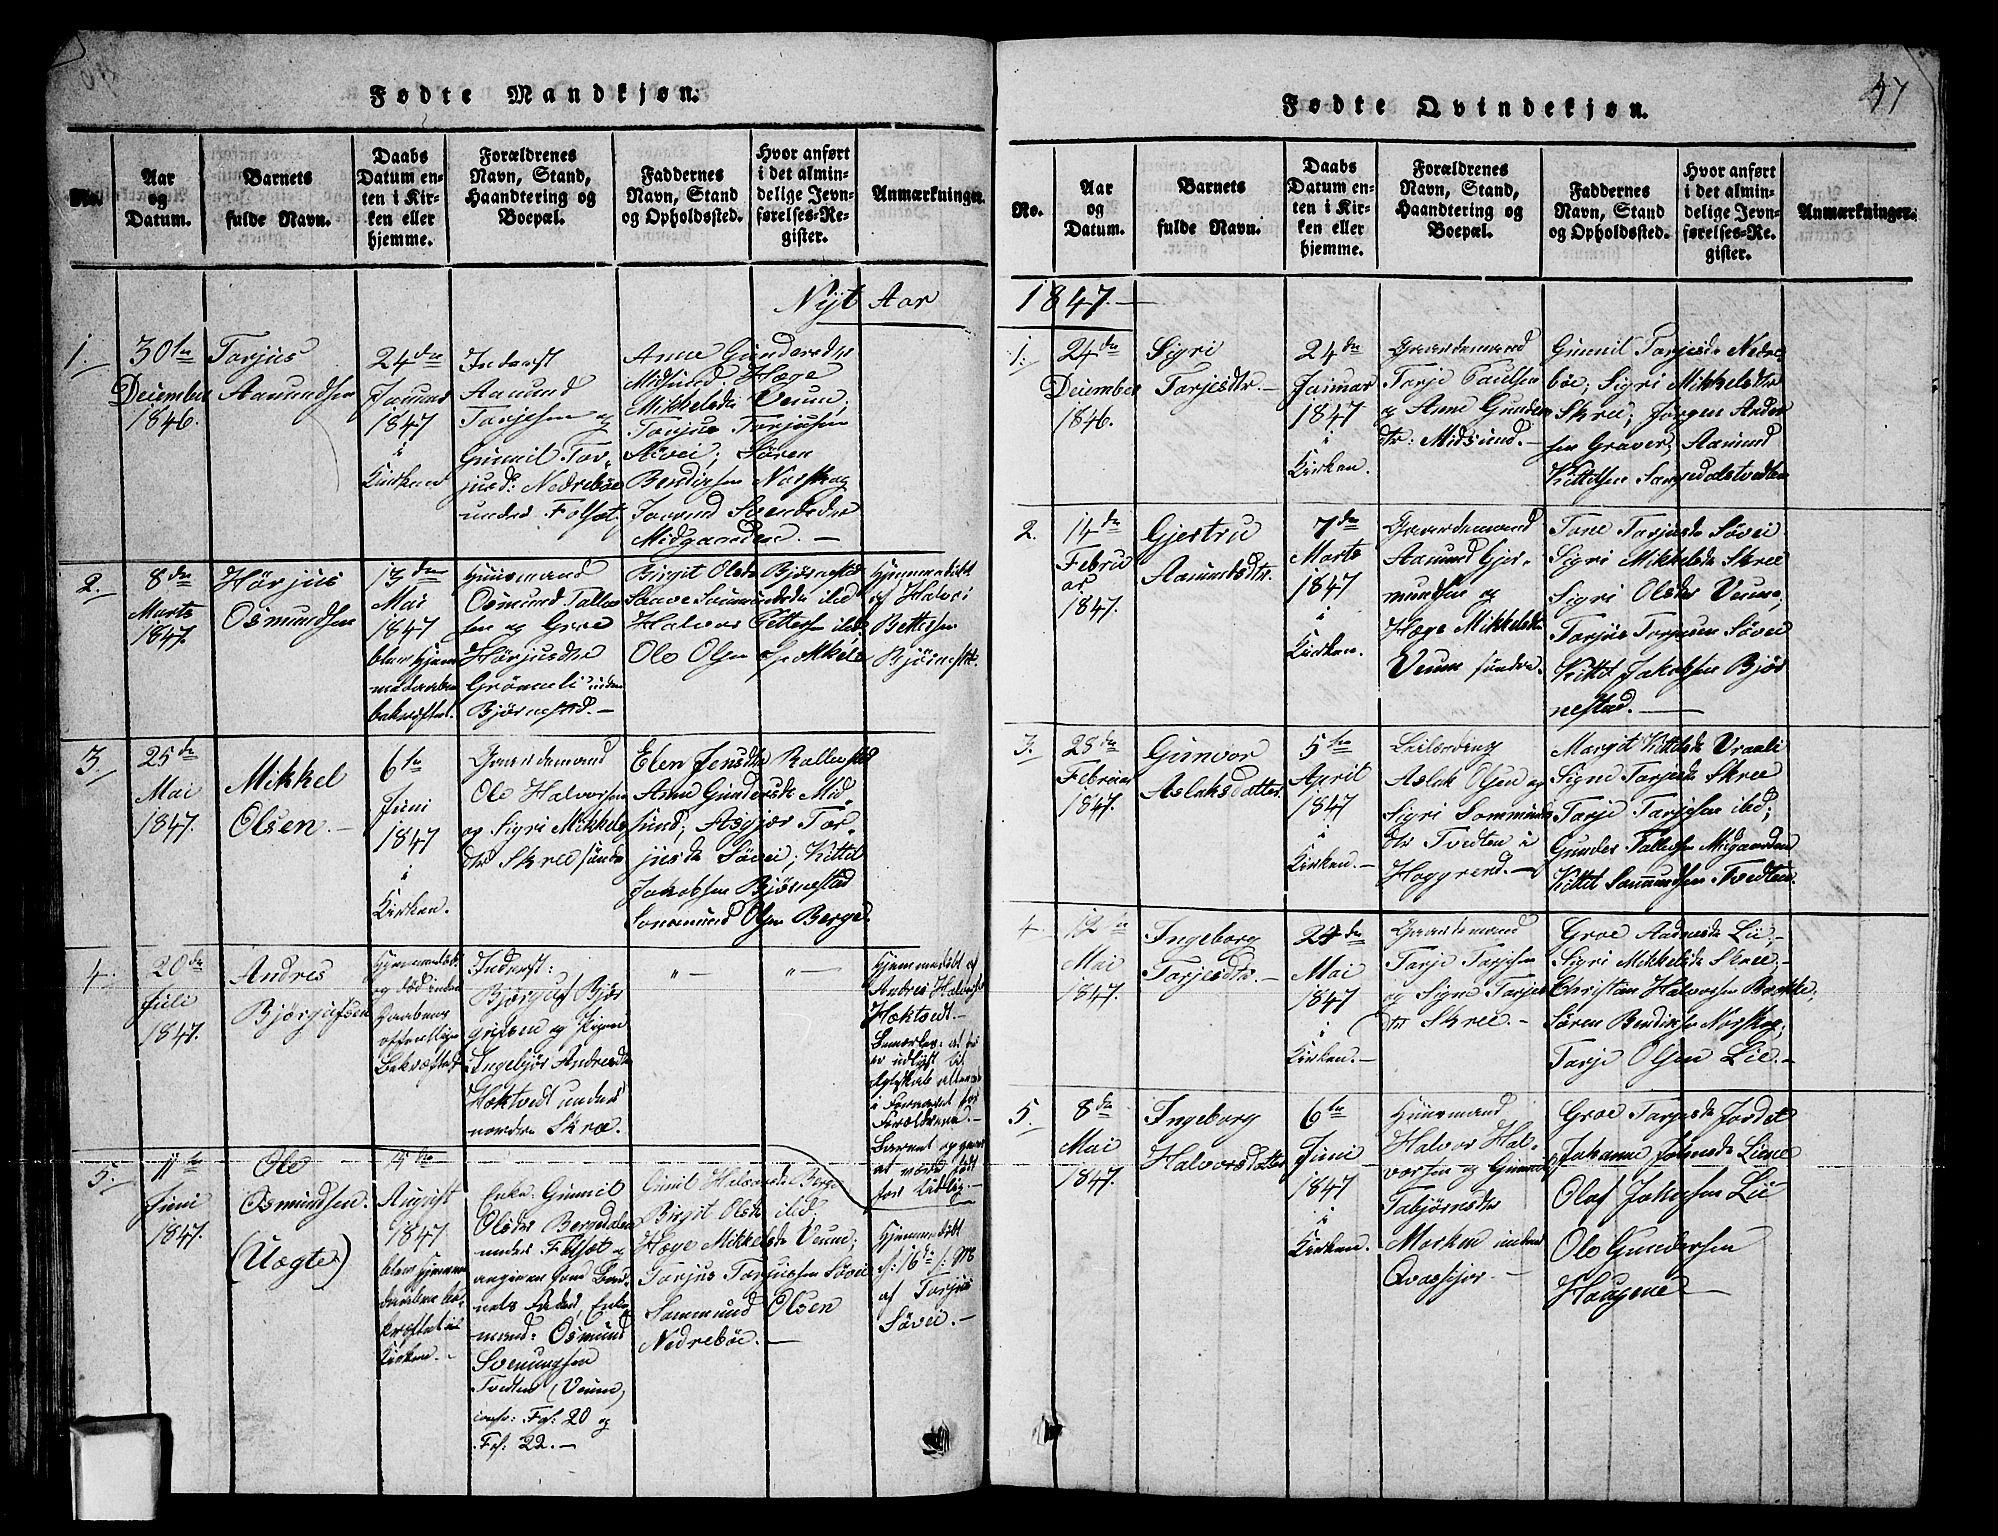 Fødte Mandkjøn.
No.
Aar
og
Datum.
Barnets
fulde Navn.
Daabs
Datum en-
ten i Kir-
ken eller
hjemme.
Forældrenes
Navn, Stand,
Haandtering og
Boepæl.
Faddernes
Navn, Stand
og Opholdssted.
Hvor anført
i det almin-
delige Jevn-
førelses-Re-
gister.
Anmærkninger.
Nyt Aar
1.
30te
December
1846.
Torjus
Aamundsen
24de
Januar
1847
i
Kirken
Inderst
Aamund
Torjesen og
Gunnil Tor-
jusd: Nedrebøe
under Folsæt.
Anne Gundersdtr
Midsund. Hæge
Mikkelsdtr Veum;
Torjus Torjusen
Søvei; Søren
Bendixsen Norskog
Svendsdtr
Midgaarden. —
2.
8de
Marts
1847.
Hørjus
Osmundsen
13de
Mai
1847
blev hjem-
medaaben
bekræftet.
Huusmand
Osmund Talle
sen og Groe
Hørjusdtr
Grømli under
Bjørnestad. —
Birgit Olsdr Bjørnestad
ibid
Halvor Kittelsen ibid
Ole Olsen
Hjemmedøbt
af Halvor
Bjørnestad.
3.
25de
Mai
1847.
Mikkel
Olsen. —
6te
Juni
1847
i
Kirken.
Gaardemand
Ole Halvorsen
og Sigri Mikkels
dtr Skree søndre
Elen Jensdtr
Anne Gundersdr Mid
sund; Asgjær Tor-
jusdr Søvei; Kittel
Jakobsen Bjørnestad
Sommund Olsen Berge.
4.
20de
Juli
1847.
Andres
Bjørgufsen
Hjemmedøbt
og død inden
Daabens
offentlige
Bekræftelse
Inderst:
Bjørguf Bjør
gufsen og Pigen
Ingebjør Andresdtr
Høktvedt under
nordre Skræ.
" —
" —
Hjemmedøbt af
Andres Halvorsen
Høktvedt. —
Bemærkes: at der
er udlyst til
Ægteskab
i Forveien for
Forældrene. —
Barnet
at være født
for tidlig. —
5.
11te
Juni
1847.
Ole
Osmundsen.
(Uægte)
4de
August
1847
blev hjemme
daaben be-
kræftet i
Kirken. —
Enke: Gunnil
Olsdtr Bergsdalen
under Folsæt og
angiven som Bar-
nets Fader, Enke
mand: Osmund
Svenungsen
Tvedten (Veum,
confr: Fol: 20 og
Fol: 22. —
Gunil Halvorsdtr Berge
Birgit Olsdr ibid;
Hæge Mikkelsdr Veum;
Torjus Torjussen Søvei
Sommund Olsen
Nedrebøe. —
Hjemmedøbt
af Torjus
Søvei. —
Fødte Qvindekjøn.
47
No.
Aar
og
Datum.
Barnets
fulde Navn.
Daabs
Datum en-
ten i Kir-
ken eller
hjemme.
Forældrenes
Navn, Stand,
Haandtering og
Boepæl.
Faddernes
Navn, Stand
og Opholdssted.
Hvor anført
i det almin-
delige Jevn-
førelses-Re-
gister.
Anmærkninger.
1847. —
1.
24de
December
1846.
Sigri
Torjesdtr. —
24de
Januar
1847
i
Kirken.
Gaardemand
Torje Paulsen
og Anne Gunders
dtr: Midsund. —
Gunnil Torjesdr Nedre
bøe; Sigri Mikkelsdtr
Skree; Jørgen Ander
sen Graver; Aamund
Kittelsen
2.
14de
Febru
ar
1847.
Gjestru
Aamundsdtr.
7de
Marts
1847
i
Kirken.
Gaardemand
Aamund Gjer-
mundsen og
Hæge Mikkelsdr
Veum søndre.
Tone Torjusdr Søvei
Sigri Mikkelsdr Skree
Sigri Olsdtr Veum;
Torjus Torjusen Søvei
Kittel Jakobsen Bjør
nestad. —
3.
28de
Februar
1847.
Gunvor
Aslaksdatter.
5te
April
1847
i
Kirken. —
Leilending
Aslak Olsen og
Sigri Sommunds
dtr Tvedten i
Høygrend. —
Margit Kittelsdr Vraali
Signe Torjesdr Skree
Torje Torjesen ibid;
Gunder Tallefsen Midgaarden
Kittel Sommundsen Tvedten.
4
12te
Mai
1847.
Ingeborg
Torjesdtr. —
24de
Mai
1847
i
Kirken. —
Gaardemand
Torje Torjesen
og Signe Torjes
dtr Skree. —
Groe Andresdr Lie, —
Sigri Mikkelsdr Skree. —
Christian Halvorsen Bakke;
Søren Bendixsen Norskog;
Torje Olsen Lie. —
5.
8de
Mai
1847.
Ingeborg
Halvorsdatter
6te
Juni
1847
i
Kirken.
Huusmand
Halvor Hal-
vorsen og Gunnil
Tabjørnsdtr
Morken under
Qvaasjor. —
Groe Torjesdr Jordet
Johanne
Olaf Jakobsen Lie
Ole Gundersen
Haugene —